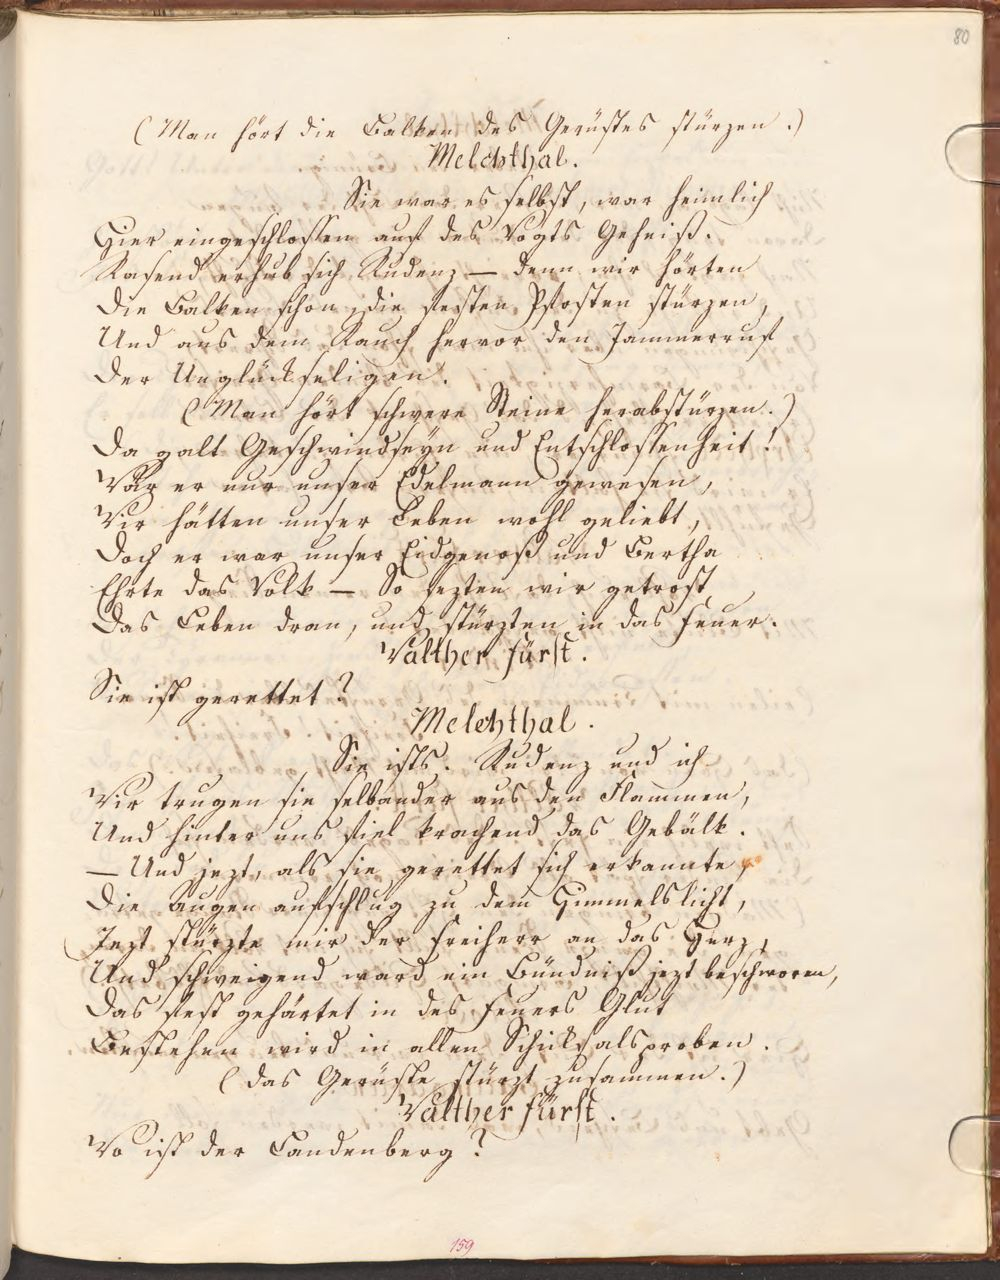 80
(Man hört die Balken des Gerüstes stürzen.)
Melchthal.
Sie war es selbst, war heimlich
Hier eingeschlossen auf des Vogts Geheiß.
Rasend erhub sich Rudenz — denn wir hörten
Die Balken schon, die festen Pfosten stürzen,
Und aus dem Rauch hervor den Jammerruf
Der Unglückseligen.
(Man hört schwere Steine herabstürzen.)
Da galt Geschwindseyn und Entschlossenheit!
Wär er nur unser Edelmann gewesen,
Wir hätten unser Leben wohl geliebt,
Doch er war unser Eidgenoß und Bertha
Ehrte das Volk — So sezten wir getrost
Das Leben dran, und stürzten in das Feuer.
Walther Fürst.
Sie ist gerettet?
Melchthal.
Sie ists. Rudenz und ich
Wir trugen sie selbander aus den Flammen,
Und hinter uns fiel krachend das Gebälk.
— Und jezt, als sie gerettet sich erkannte,
Die Augen aufschlug zu dem Himmelslicht,
Jezt stürzte mir der Freiherr an das Herz,
Und schweigend ward ein Bündniß jezt beschworen,
Das fest gehärtet in des Feuers Glut
Bestehen wird in allen Schiksalsproben.
(das Gerüste stürzt zusammen.)
Walther Fürst.
Wo ist der Landenberg?
159